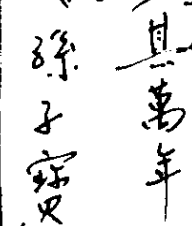 其萬年
孫子寶